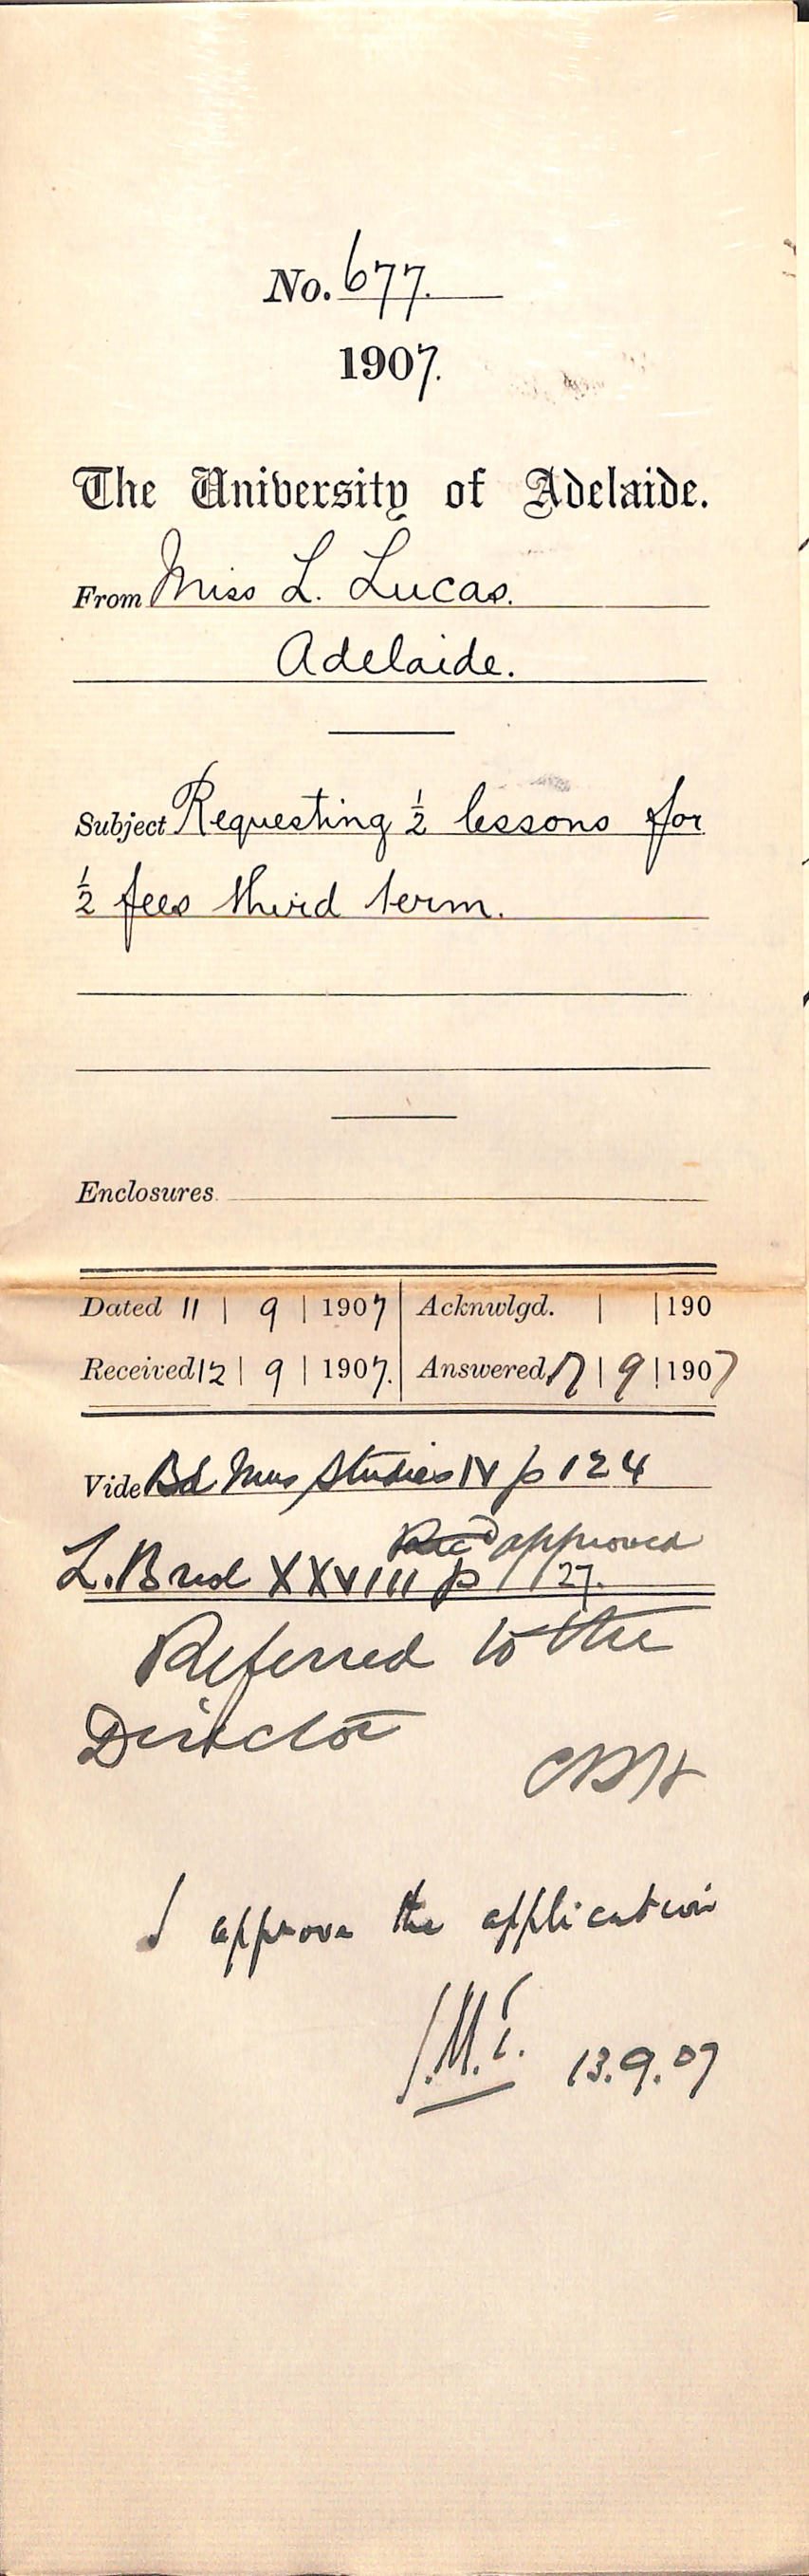 No. 677.
1907.
The University of Adelaide.
From Miss L. Lucas.
Adelaide.
Subject Requesting ½ lessons for
½ fees third term.
Enclosures
Dated 11 | 9 | 1907 Acknwlgd. | | 190
Received 12 | 9 | 1907. Answered 17 | 9 | 1907
Vide Bd Mus Studies IV p 124
approved
L. B XXVIII p 127.
Referred to the
Director
I approve the application
13.9.07